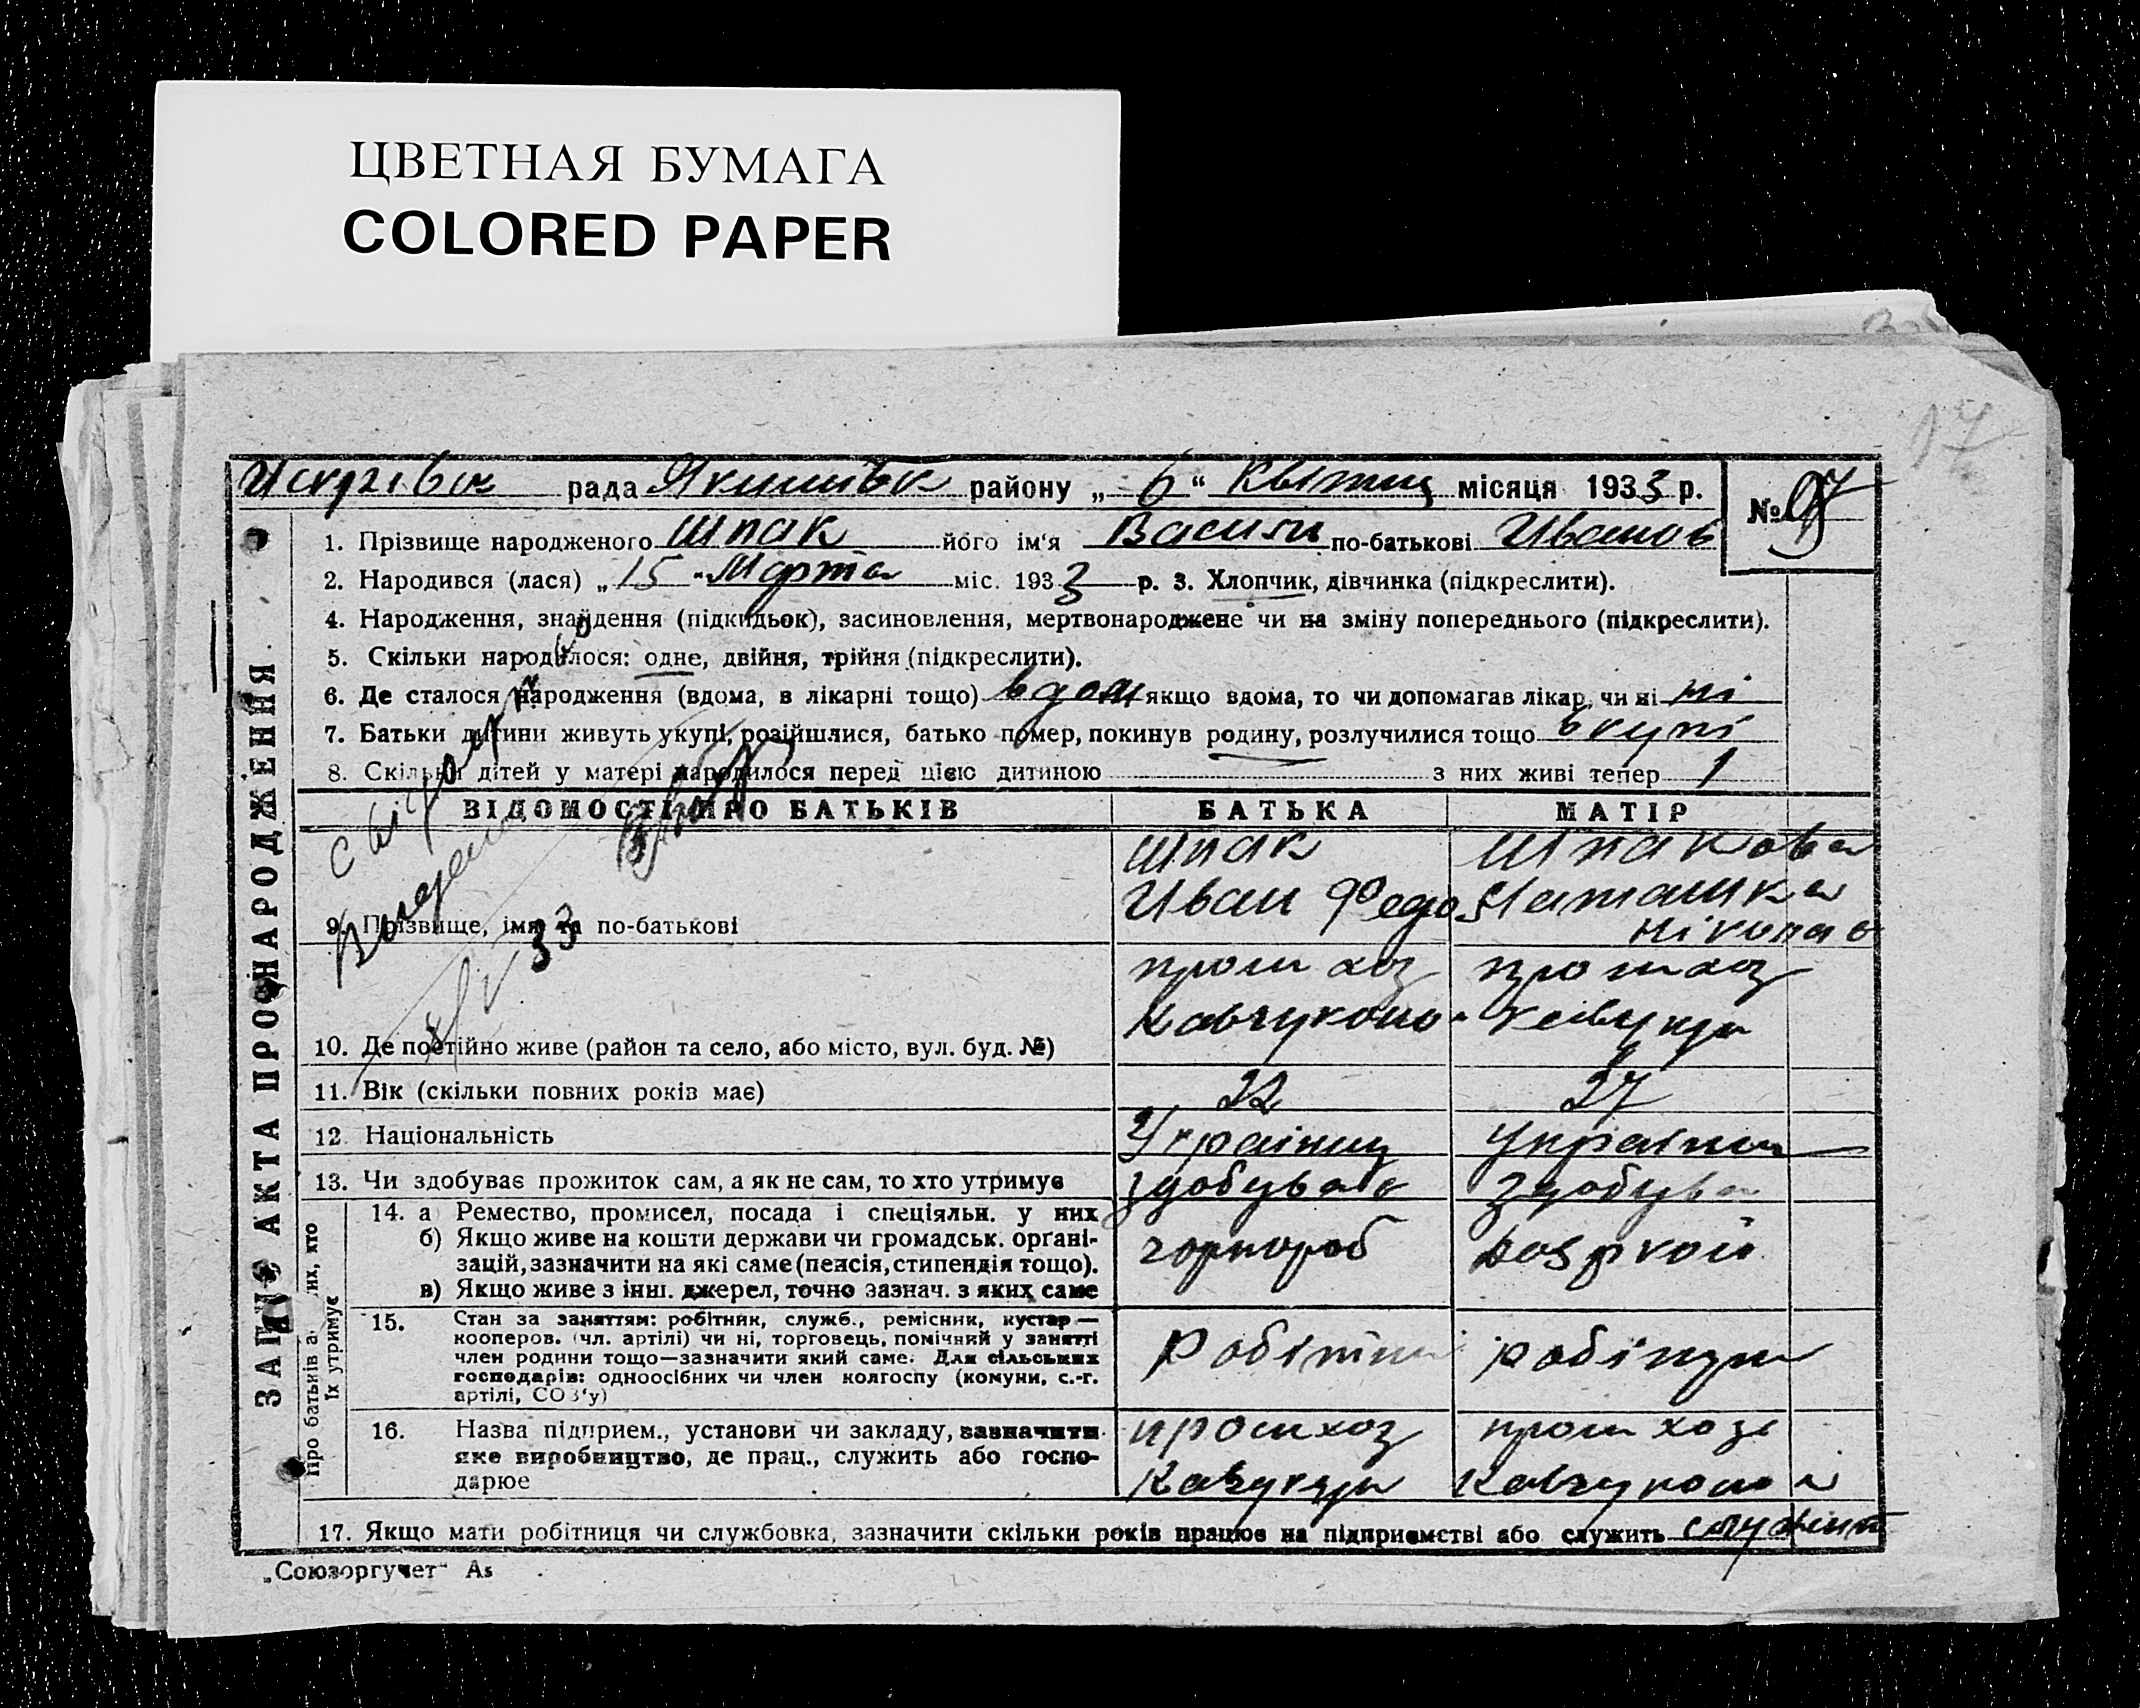 ЦВЕТНАЯ БУМАГА
COLORED PAPER
17
рада Якимівк району „ 6 “ Квітня місяця 1933 р.
№ 97
1. Прізвище народженого Шпак його ім'я Василь по-батькові Иванов
2. Народився (лася) „ 15 " Марта міс. 1933 р. 3. Хлопчик, дівчинка (підкреслити).
4. Народження, знайдення (підкидьок), засиновлення, мертвонароджене чи на зміну попереднього (підкреслити).
5. Скільки народилося: одне, двійня, трійня (підкреслити).
6. Де сталося народження (вдома, в лікарні тощо) вдома якщо вдома, то чи допомагав лікар, чи ні ні
7. Батьки дитини живуть укупі, розійшлися, батько помер, покинув родину, розлучилися тощо вкупі
8. Скільки дітей у матері народилося перед цією дитиною з них живі тепер 1
ЗАПИС АКТА ПРО НАРОДЖЕННЯ
ВІДОМОСТІ ПРО БАТЬКІВ БАТЬКА МАТІР
Шпак Шпакова
Иван Федо Наташка
9. Прізвище, імя та по-батькові Нікопав
33
10. Де постійно живе (район та село, або місто, вул. буд. №)
11. Вік (скільки повних років має) 22 27
12 Національність Українец Українка
13. Чи здобуває прожиток сам, а як не сам, то хто утримує здобуває здобува
Про батьків а них, хто їх утримує
14. а Ремество, промисел, посада і спеціяльн. у них
б) Якщо живе на кошти держави чи громадськ. органі-
зацій, зазначити на які саме (пенсія, стипендія тощо). чорнороб дояркой
в) Якщо живе з інш. джерел, точно зазнач. з яких саме
15. Стан за заняттям: робітник, служб., ремісник, кустар—
кооперов. (чл. артілі) чи ні, торговець, помічний у занятті
член родини тощо—зазначити який саме. Для сільських
господарів: одноосібних чи член колгоспу (комуни, с.-г.
артілі, СОЗ'у)
Робітни робінця
16. Назва підприєм., установи чи закладу, зазначити
яке виробництво, де прац., служить або госпо-
дарює
17. Якщо мати робітниця чи службовка, зазначити скільки років працює на підприємстві або служить служит
„Союзоргучет“ Аз